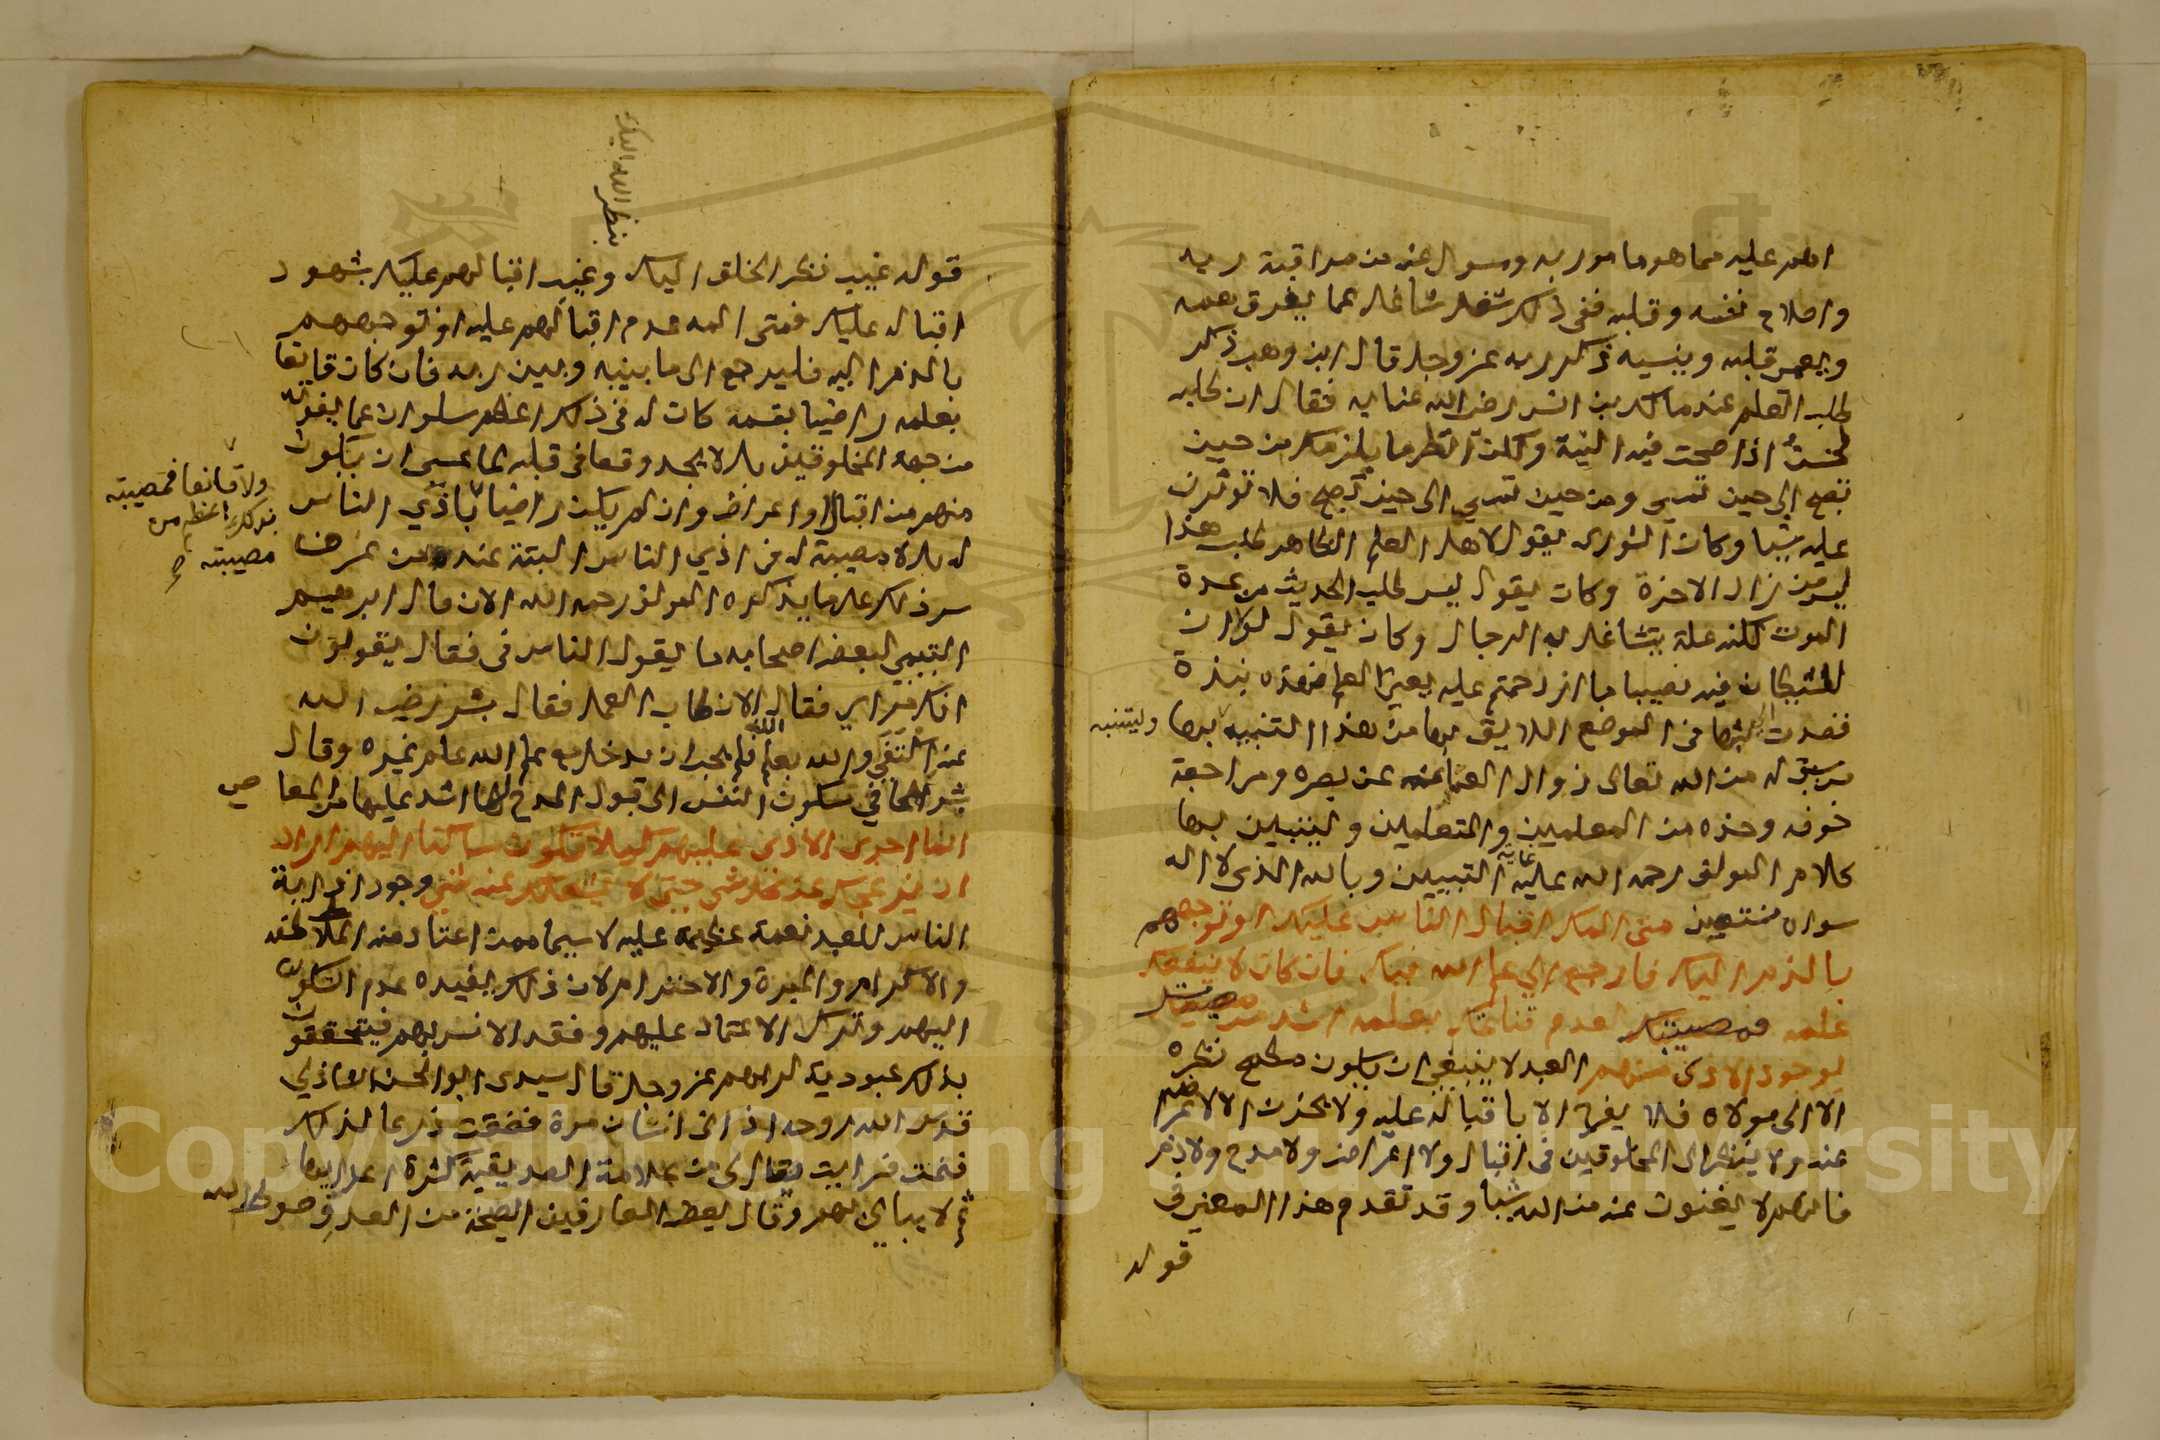 اهم عليه مما هو مامور به ومسول عنه من مراقبة ربه
واصلاح نفسه وقلبه ففي ذلك شغل شاغل عما يفرق همه
ويعمر قلبه وينسيه ذكر ربه عز وجل قال ابن وهب ذكر
طلب العلم عند مالك بن انس رضي الله عنه فقال ان طلبه
لحسن اذا صحت فيه النية ولكن انظر ما يلزمك من حين
تصبح الى حين تمسي ومن حين تمسي الى حين تصبح فلا توثرن
عليه شيا وكان الثوري يقول لاهل العلم الظاهر طلب هذا
ليس من زاد الاخرة وكان يقول ليس طلب الحديث من عدة
الموت لكنه علة يتشاغل به الرجال وكان يقول لولا ان
للشيطان فيه نصيبا ما ازدحمتم عليه يعني العلم فهذه نبذة
قصدت في الموضع اللايق بها من هذا التنبيه بها وليتنبه
من سبق له من الله تعالى زوال العما عن بصره ومراجعة
خوفه وحذره من المعلمين والمتعلمين وليتبين بها
كلام المولف رحمه الله عليه غاية التبيين وبالله الذي لا اله
سواه نستعين متى المك اقبال الناس عليك او توجههم
بالذم اليك فارجع الى علم الله فيك فان كان لا ينفعك
علمه فمصيبتك لعدم قناعتك بعلمه اشد من مصيبتك
لوجود الاذى منهم العبد لا ينبغي ان يكون مطمح نظره
الا الى مولاه فلا يفرح الا باقباله عليه ولا يحزن الا لاعراضه
عنه ولا ينظر الى المخلوقين في اقبال ولا اعراض ولا مدح ولا ذم
فانهم لا يغنون عنه من الله شيا وقد تقدم هذا المعنى في
قوله
بنظر الله اليك
قوله غيب نظر الخلق اليك وغيب اقبالهم عليك بشهود
اقباله عليك فمتى المه عدم اقبالهم عليه او توجههم
بالذم اليه فليرجع الى ما بينه وبين ربه فان كان قانعا
بعلمه راضيا بقسمه كان له في ذلك اعظم سلوان عما يفوته
من جهة المخلوقين بل لا يجد وقعا في قلبه لما عسى ان يكون
منهم من اقبال او اعراض وان لم يكن راضيا باذي الناس
ولا قانعا فمصيبته
بذلك اعظم من
مصيبته
له بل لا مصيبة له في اذي الناس البتة عند من عرف
سر ذلك على ما يذكره المولف رحمه الله الان قال ابرهيم
التيمي لبعض اصحابه ما يقول الناس في فقال يقولون
انك مراي فقال الان طاب العمل فقال بشر رضي الله
عنه اكتفى والله بعلم الله فلم يحب ان يدخل مع علم الله علم غيره وقال
بشر الحافي سكون النفس الى قبول المدح لها اشد عليها من المعاصي
انما اجرى الاذى عليهم كيلا تكون ساكنا اليهم اراد
ان يزعجك عن كل شي حتى لا يشغلك عنه شي وجود اذاية
الناس للعبد نعمة عظيمة عليه لا سيما ممن اعتاد منه الملاطفه
والاكرام والمبرة والاحترام لان ذلك يفيده عدم السكون
اليهم وترك الاعتماد عليهم وفقد الانس بهم فيتحقق
بذلك عبودية لربهم عز وجل قال سيدى ابو الحسن الشاذلي
قدس الله روحه اذاني انسان مرة فضقت ذرعا لذلك
فنمت فرايت يقال لي من علامة الصديقية كثرة اعدايها
ثم لا يبالي بهم وقال بعض العارفين الصيحة من العدو سوط الله